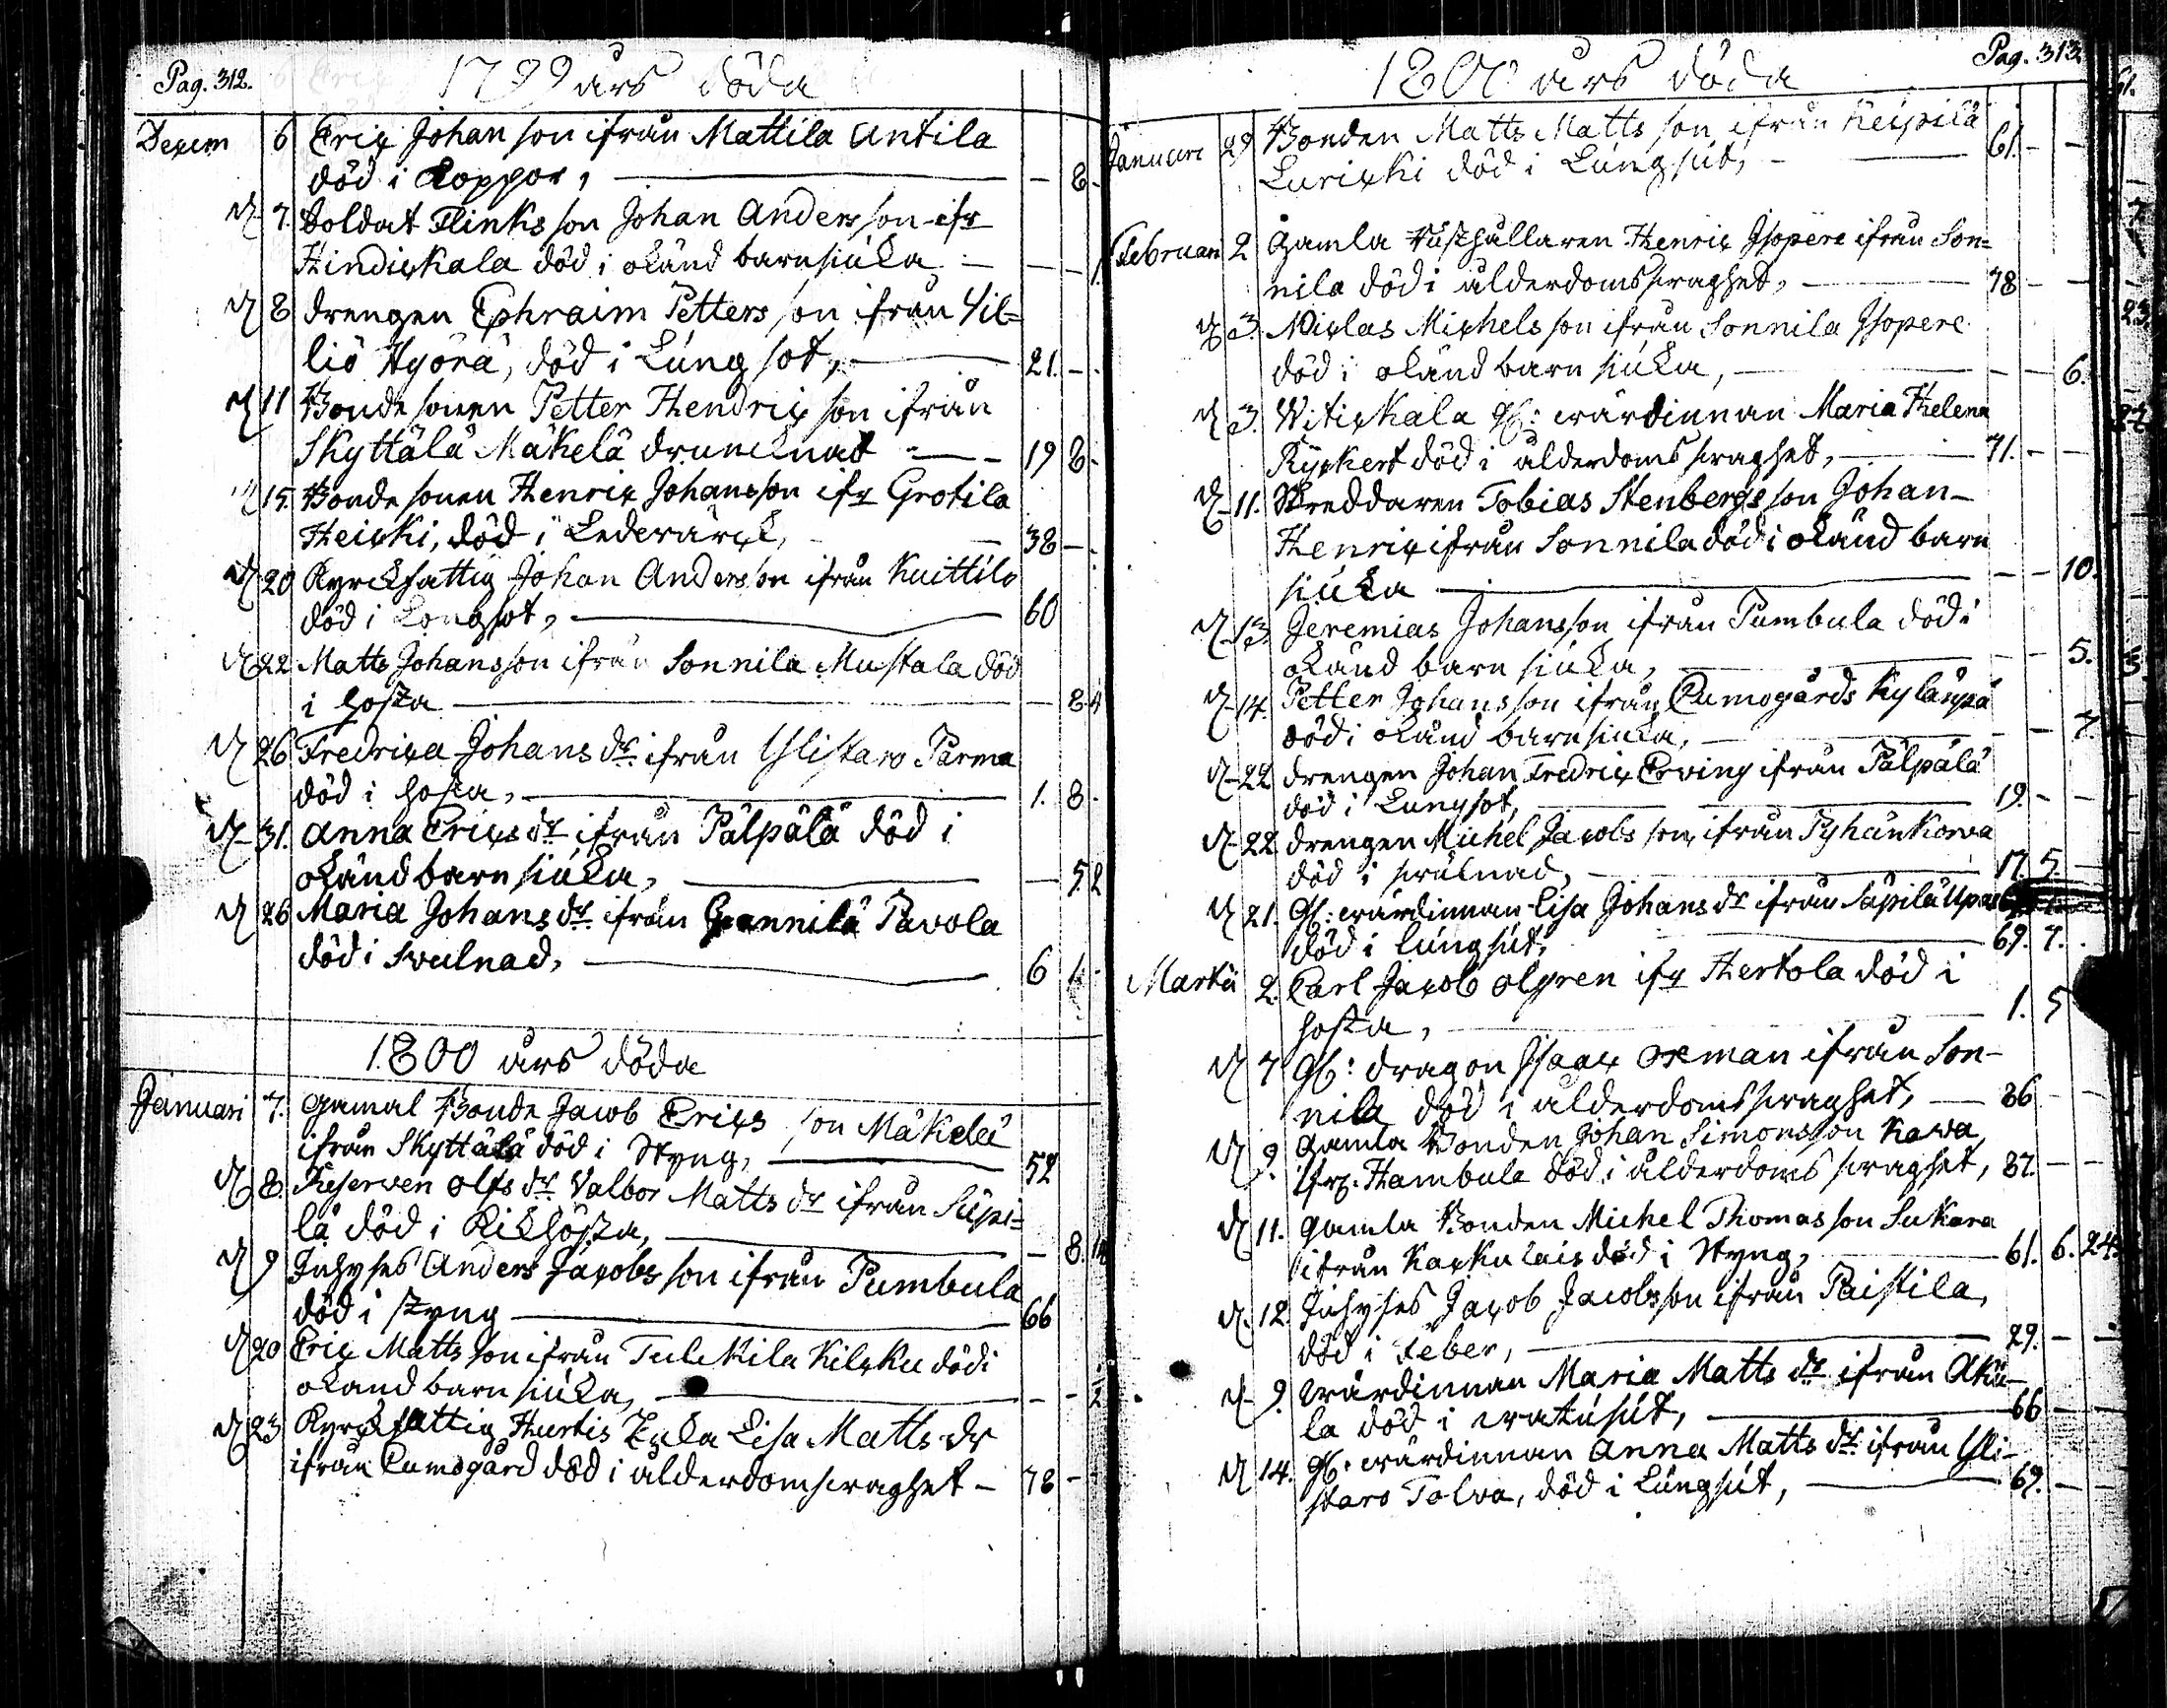 Pag. 312.
1799 års döda
Decem 6 Eric Johan son ifrån Mattila Antila
död i Koppor, — — 8 -
d 7. Soldat Flinks son Johan Anders son ifr
Hindickala död i okänd barnsiuka — — - 1.
d 8 drengen Ephraim Petters son ifrån Vil=
liö Hyörä, död i Lungsot, — 21. -
d 11 Bondesonen Petter Hendric son ifrån
Skyttälä Mäkelä druncknad — 19 8 -
d 15. Bondesonen Henric Johansson ifr Grotila
Heicki, död i Ledervärck, — 38 -
d 20 Kyrckfattig Johan Andersson ifrån Kuittila
död i Longsot, — 60
d 22 Matts Johansson ifrån Sonnila Mustala död
i hosta — — 8 4
d 26 Fredrica Johans dr ifrån Ylistaro Parma
död i hosta, — 1. 8.
d 31. Anna Erics dr ifrån Pälpälä död i
okänd barnsiuka, — — 5 2
d 26 Maria Johans dr ifrån Gennilä Pavola
död i Svulnad, — 6 4 -
1800 års döda
Januari 7. Gamal Bonde Jacob Erics son Mäkelä
ifrån Skyttälä död i Styng, — 52
d 8. Reserven Olfs dr Valbor Matts dr ifrån Säpi=
lä död i Kikhosta, — - 8. 14
d 9 Inhyses Anders Jacobs son ifrån Pumbula
död i styng — 66
d 20 Eric Matts son ifrån Tulckila Kilcku död i
okand barnsiuka, — - - 1/2
d 23 Kyrckfattig Hurtis Enka Lisa Matts dr
ifrån Cumogård död i ålderdomscraghet - 78 -
Pag. 313.
1800 års döda
Januari 29 Bonden Matts Matts son ifrån Keipilä
Luricki död i Lungsut, — 61. - -
Februari 2 Gamla Rusthållaren Henric Isopere ifrån Son=
nila död i ålderdomscraghet, — 78 - -
d 3. Niclas Michels son ifrån Sonnila Isopere
död i okänd barnsiuka, — - - 6.
d 3. Witickala gl: wärdinnan Maria Helena
Ryckert död i ålderdomscraghet, — 71. - -
d 11. Skreddaren Tobias Stenbergs son Johan
Henric ifrån Sonnila död i okänd barn
siuka — - - 10.
d 13. Jeremias Johansson ifrån Pumbula död i
okänd barnsiuka, — - - 5.
d 14. Petter Johansson ifrån Cumogårds Kylänpä
död i okänd barnsiuka, — - - 7
d 22 drengen Johan Fredric Erving ifrån Pälpälä
död i Lungsot, — 19. - -
d 22 drengen Michel Jacobs son ifrån Pyhänkorva
död i svulnad, — 17. 5. -
d 21. Gl: wärdinnan Lisa Johans dr ifrån Säpilä Upas
död i lungsut, — 69. 7. .
Martii 2. Carl Jacob Olgren ifr Hertola död i
hosta, — 1. 5
d 7 Gl: dragon Isaac Oxman ifrån Son-
nila död i ålderdomscraghet, — 86 - -
d 9. Gamla Bonden Johan Simonsson Kawa
ifr. Hambula död i ålderdoms craghet, 87. - -
d 11. Gamla Bonden Michel Thomas son Sukara
ifrån Karkulais död i Styng, — 61. 6. 24.
d 12. Inhyses Jacob Jacobsson ifrån Paistila,
död i Feber, — 29. - -
d 9. Wärdinnan Maria Matts dr ifrån Aku-
la död i watusut, — 66 - -
d 14. Gl: wärdinnan Anna Matts dr ifrån Yli-
staro Tolva, död i Lungsut, — 69. - -